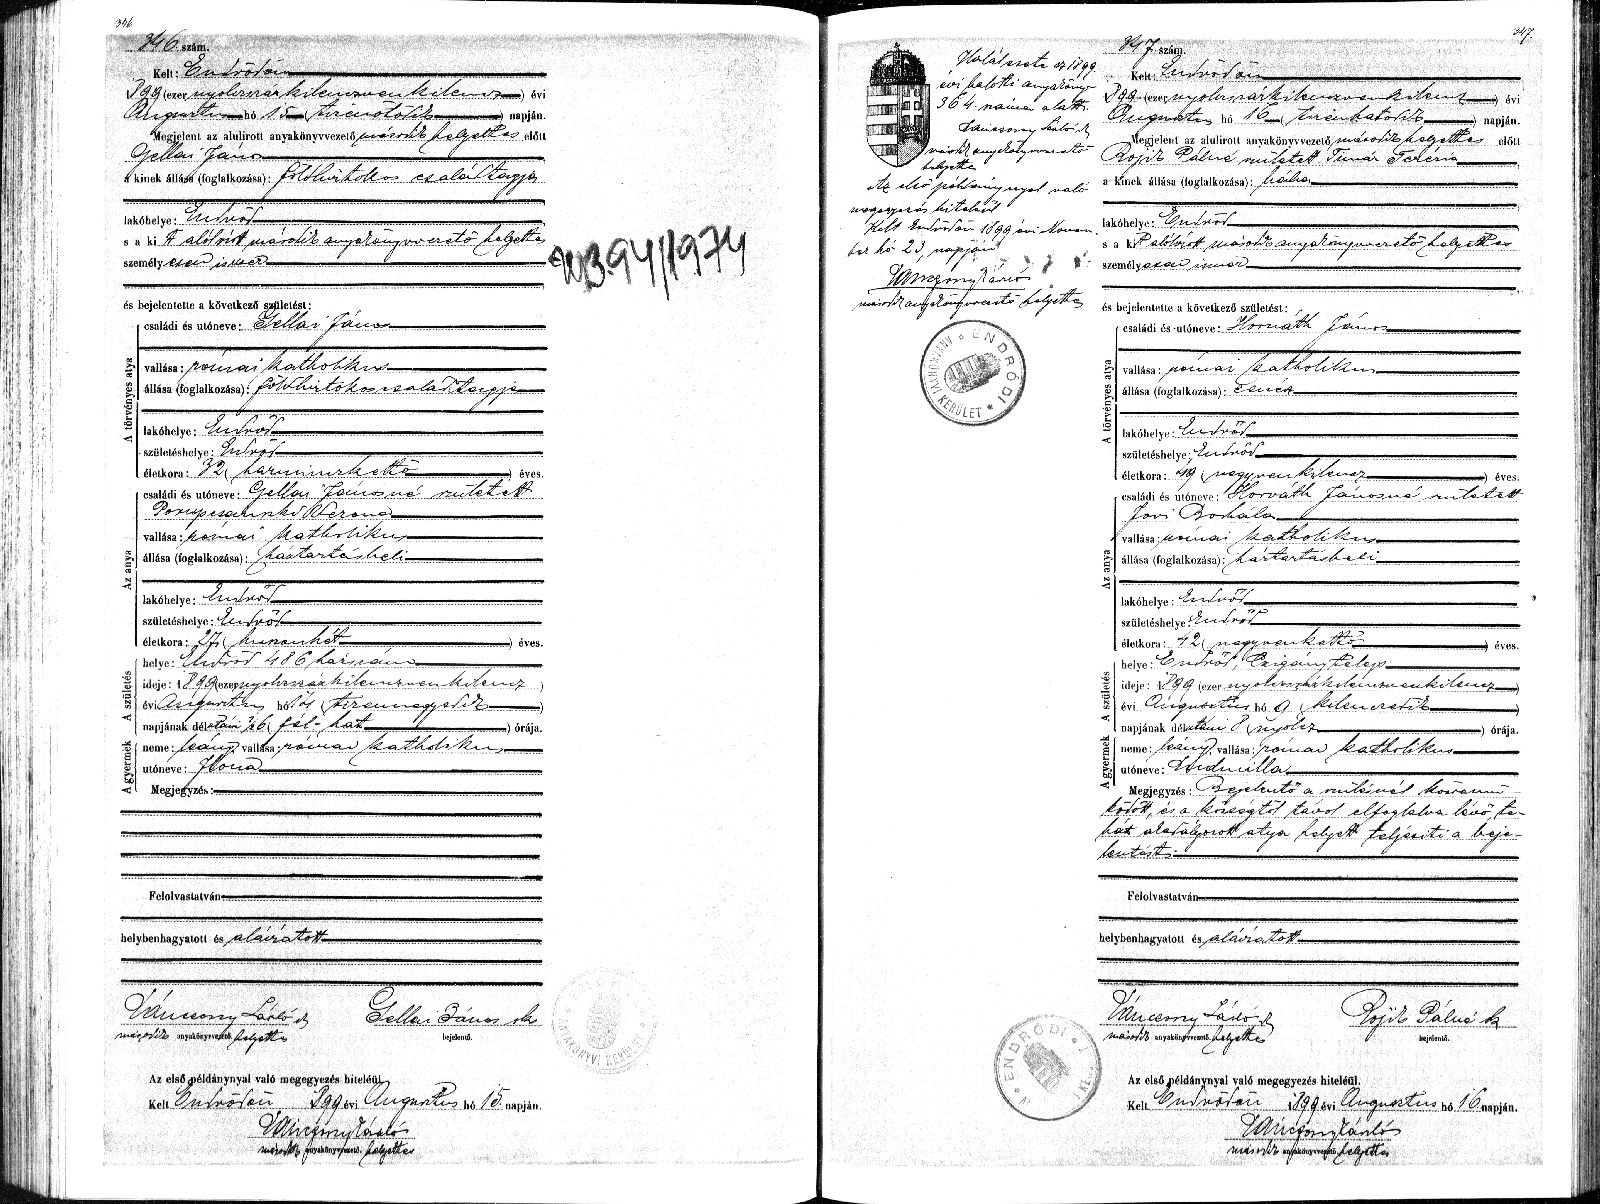 346
346. szám.
Kelt: Endrődön
1899 (ezer nyolcszázkilenczvenkilencz) évi
Augusztus hó 15 (tizenötödik) napján.
Megjelent az alulirott anyakönyvvezető második helyettes előtt
Gellai János
a kinek állása (foglalkozása): földbirtokos család tagja
lakóhelye: Endrőd
s a kit alólirott második anyakönyvvezető helyettes
személyesen ismer
és bejelentette a következő születést:
A törvényes atya
családi és utóneve: Gellai János
vallása: római katholikus
állása (foglalkozása): földbirtokos család tagja
lakóhelye: Endrőd
születéshelye: Endrőd
életkora: 32 (harminczkettő) éves.
Az anya
családi és utóneve: Gellai Jánosné született
Verona
vallása: római katholikus
állása (foglalkozása): háztartásbeli
lakóhelye: Endrőd
születéshelye: Endrőd
életkora: 27 (huszonhét) éves.
A születés
helye: Endrőd 486 házszám
ideje: 1899 (ezer nyolcszázkilenczvenkilencz)
évi Augusztus hó 14 (tizennegyedik)
napjának délután ½6 (fél-hat) órája.
A gyermek
neme: leány, vallása: római katholikus
utóneve: Ilona
Megjegyzés:
Felolvastatván
helybenhagyatott és aláiratott
Váncsony László
Gellai János sk
második anyakönyvvezető helyettes
bejelentő.
ANYAKÖNYVI KERÜLET
Az első példánynyal való megegyezés hiteléül.
Kelt Endrődön 1899 évi Augusztus hó 15 napján.
Váncsony László
második anyakönyvvezető helyettes
94/1974
Halálesete az 1899
évi halotti anyakönyv
364. száma alatt.
Váncsony László
második anyakönyvvezető
helyettes
Az első példánynyal való
megegyezés hiteléül
Kelt Endrődön 1899 évi Novem-
ber hó 23 napján
Váncsony László
második anyakönyvvezető helyettes
ENDRŐDI ANYAKÖNYVI KERÜLET
347
347. szám.
Kelt: Endrődön
1899 (ezer nyolcszázkilenczvenkilencz) évi
Augusztus hó 16 (tizenhatodik) napján.
Megjelent az alulirott anyakönyvvezető második helyettes előtt
Rojik Pálné született Timár Terézia
a kinek állása (foglalkozása): bába
lakóhelye: Endrőd
s a kit alólirott második anyakönyvvezető helyettes
személyesen ismer
és bejelentette a következő születést:
A törvényes atya
családi és utóneve: Horváth János
vallása: római katholikus
állása (foglalkozása): zenész
lakóhelye: Endrőd
születéshelye: Endrőd
életkora: 49 (negyvenkilencz) éves.
Az anya
családi és utóneve: Horváth Jánosné született
Borbála
vallása: római katholikus
állása (foglalkozása): háztartásbeli
lakóhelye: Endrőd
születéshelye: Endrőd
életkora: 42 (negyvenkettő) éves.
A születés
helye: Endrőd, Czigánytelep
ideje: 1899 (ezer nyolcszázkilenczvenkilencz)
évi Augusztus hó 9 (kilenczedik)
napjának délután 8 (nyolcz) órája.
A gyermek
neme: leány, vallása: római katholikus
utóneve: Ludmilla
Megjegyzés: Bejelentő a szülésnél közremű-
ködött, és a községtől távol elfoglalva lévő, te-
hát akadályozott atya helyett teljesiti a beje-
lentést.
Felolvastatván
helybenhagyatott és aláiratott
Váncsony László
Rojik Pálné sk
második anyakönyvvezető helyettes
bejelentő.
ENDRŐDI
Az első példánynyal való megegyezés hiteléül.
Kelt Endrődön 1899 évi Augusztus hó 16 napján.
Váncsony László
második anyakönyvvezető helyettes